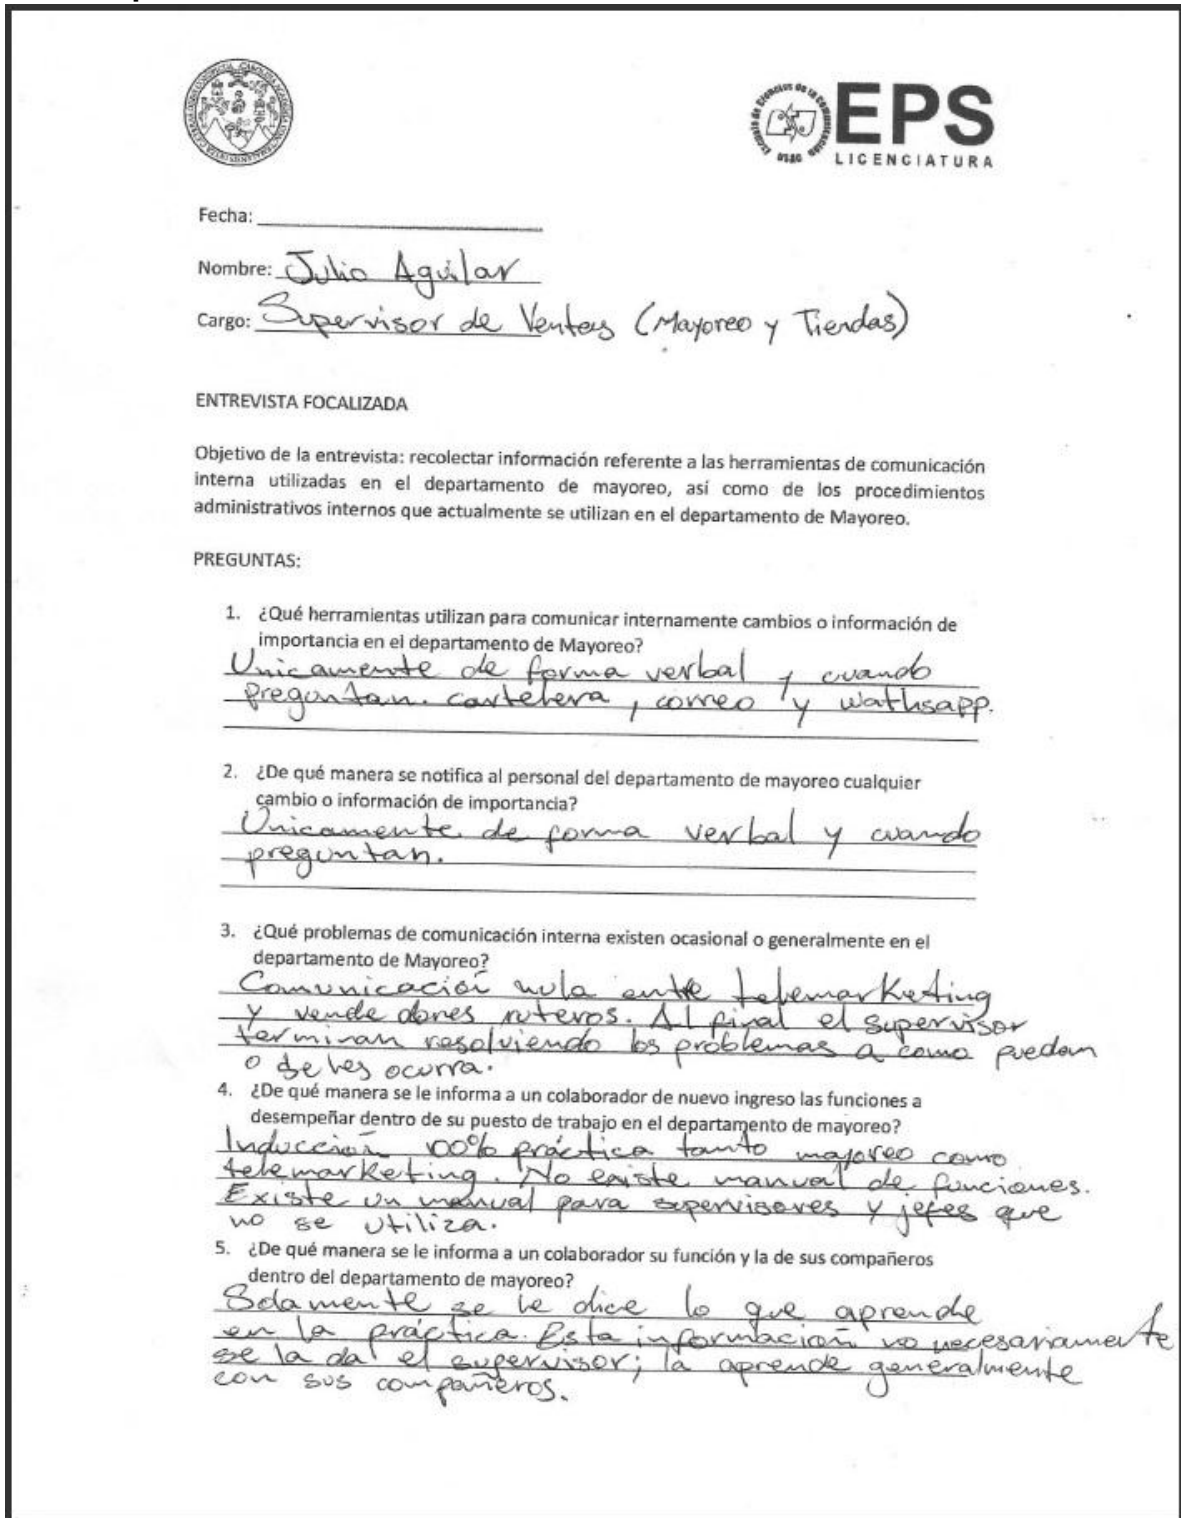 EPS
LICENCIATURA
Escuela de Ciencias de la Comunicación
USAC
Fecha:
Nombre: Julio Aguilar
Cargo: Supervisor de Ventas (Mayoreo y Tiendas)
ENTREVISTA FOCALIZADA
Objetivo de la entrevista: recolectar información referente a las herramientas de comunicación
interna utilizadas en el departamento de mayoreo, así como de los procedimientos
administrativos internos que actualmente se utilizan en el departamento de Mayoreo.
PREGUNTAS:
1. ¿Qué herramientas utilizan para comunicar internamente cambios o información de
importancia en el departamento de Mayoreo?
Unicamente de forma verbal y cuando
preguntan. cartelera, correo y wathsapp.
2. ¿De qué manera se notifica al personal del departamento de mayoreo cualquier
cambio o información de importancia?
Unicamente de forma verbal y cuando
preguntan.
3. ¿Qué problemas de comunicación interna existen ocasional o generalmente en el
departamento de Mayoreo?
Comunicación nula entre telemarketing
y vendedores ruteros. Al final el supervisor
terminan resolviendo los problemas a como puedan
o se les ocurra.
4. ¿De qué manera se le informa a un colaborador de nuevo ingreso las funciones a
desempeñar dentro de su puesto de trabajo en el departamento de mayoreo?
Inducción 100% práctica tanto mayoreo como
telemarketing. No existe manual de funciones.
Existe un manual para supervisores y jefes que
no se utiliza.
5. ¿De qué manera se le informa a un colaborador su función y la de sus compañeros
dentro del departamento de mayoreo?
Solamente se le dice lo que aprende
en la práctica. Esta información no necesariamente
se la da el supervisor; la aprende generalmente
con sus compañeros.